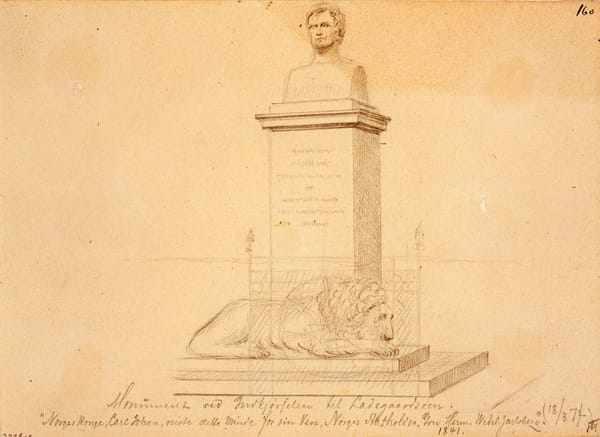 160
Monument ved Indkjørselen til Ladegaardsøen.
"Norges Konge, Carl Johan, reiste dette Minde for sin Ven, Norges Statholder, Grev Herm. Wedel Jarlsberg" (18/8 71)
1841.